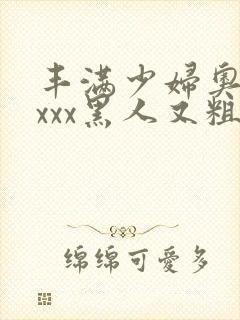 丰满少婦奧
xxx黑人又粗
绵绵可愛多